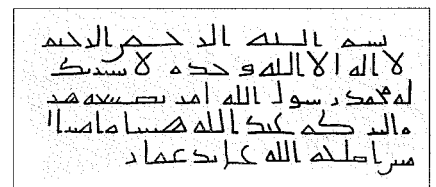 بسم الله الرحمن الرحيم
لا اله الا الله وحده لا شريك
له محمد رسول الله امر بصنعه هذ
ه البركه عبد الله هشام امير ال
مومنين اصلحه الله على يد عمار